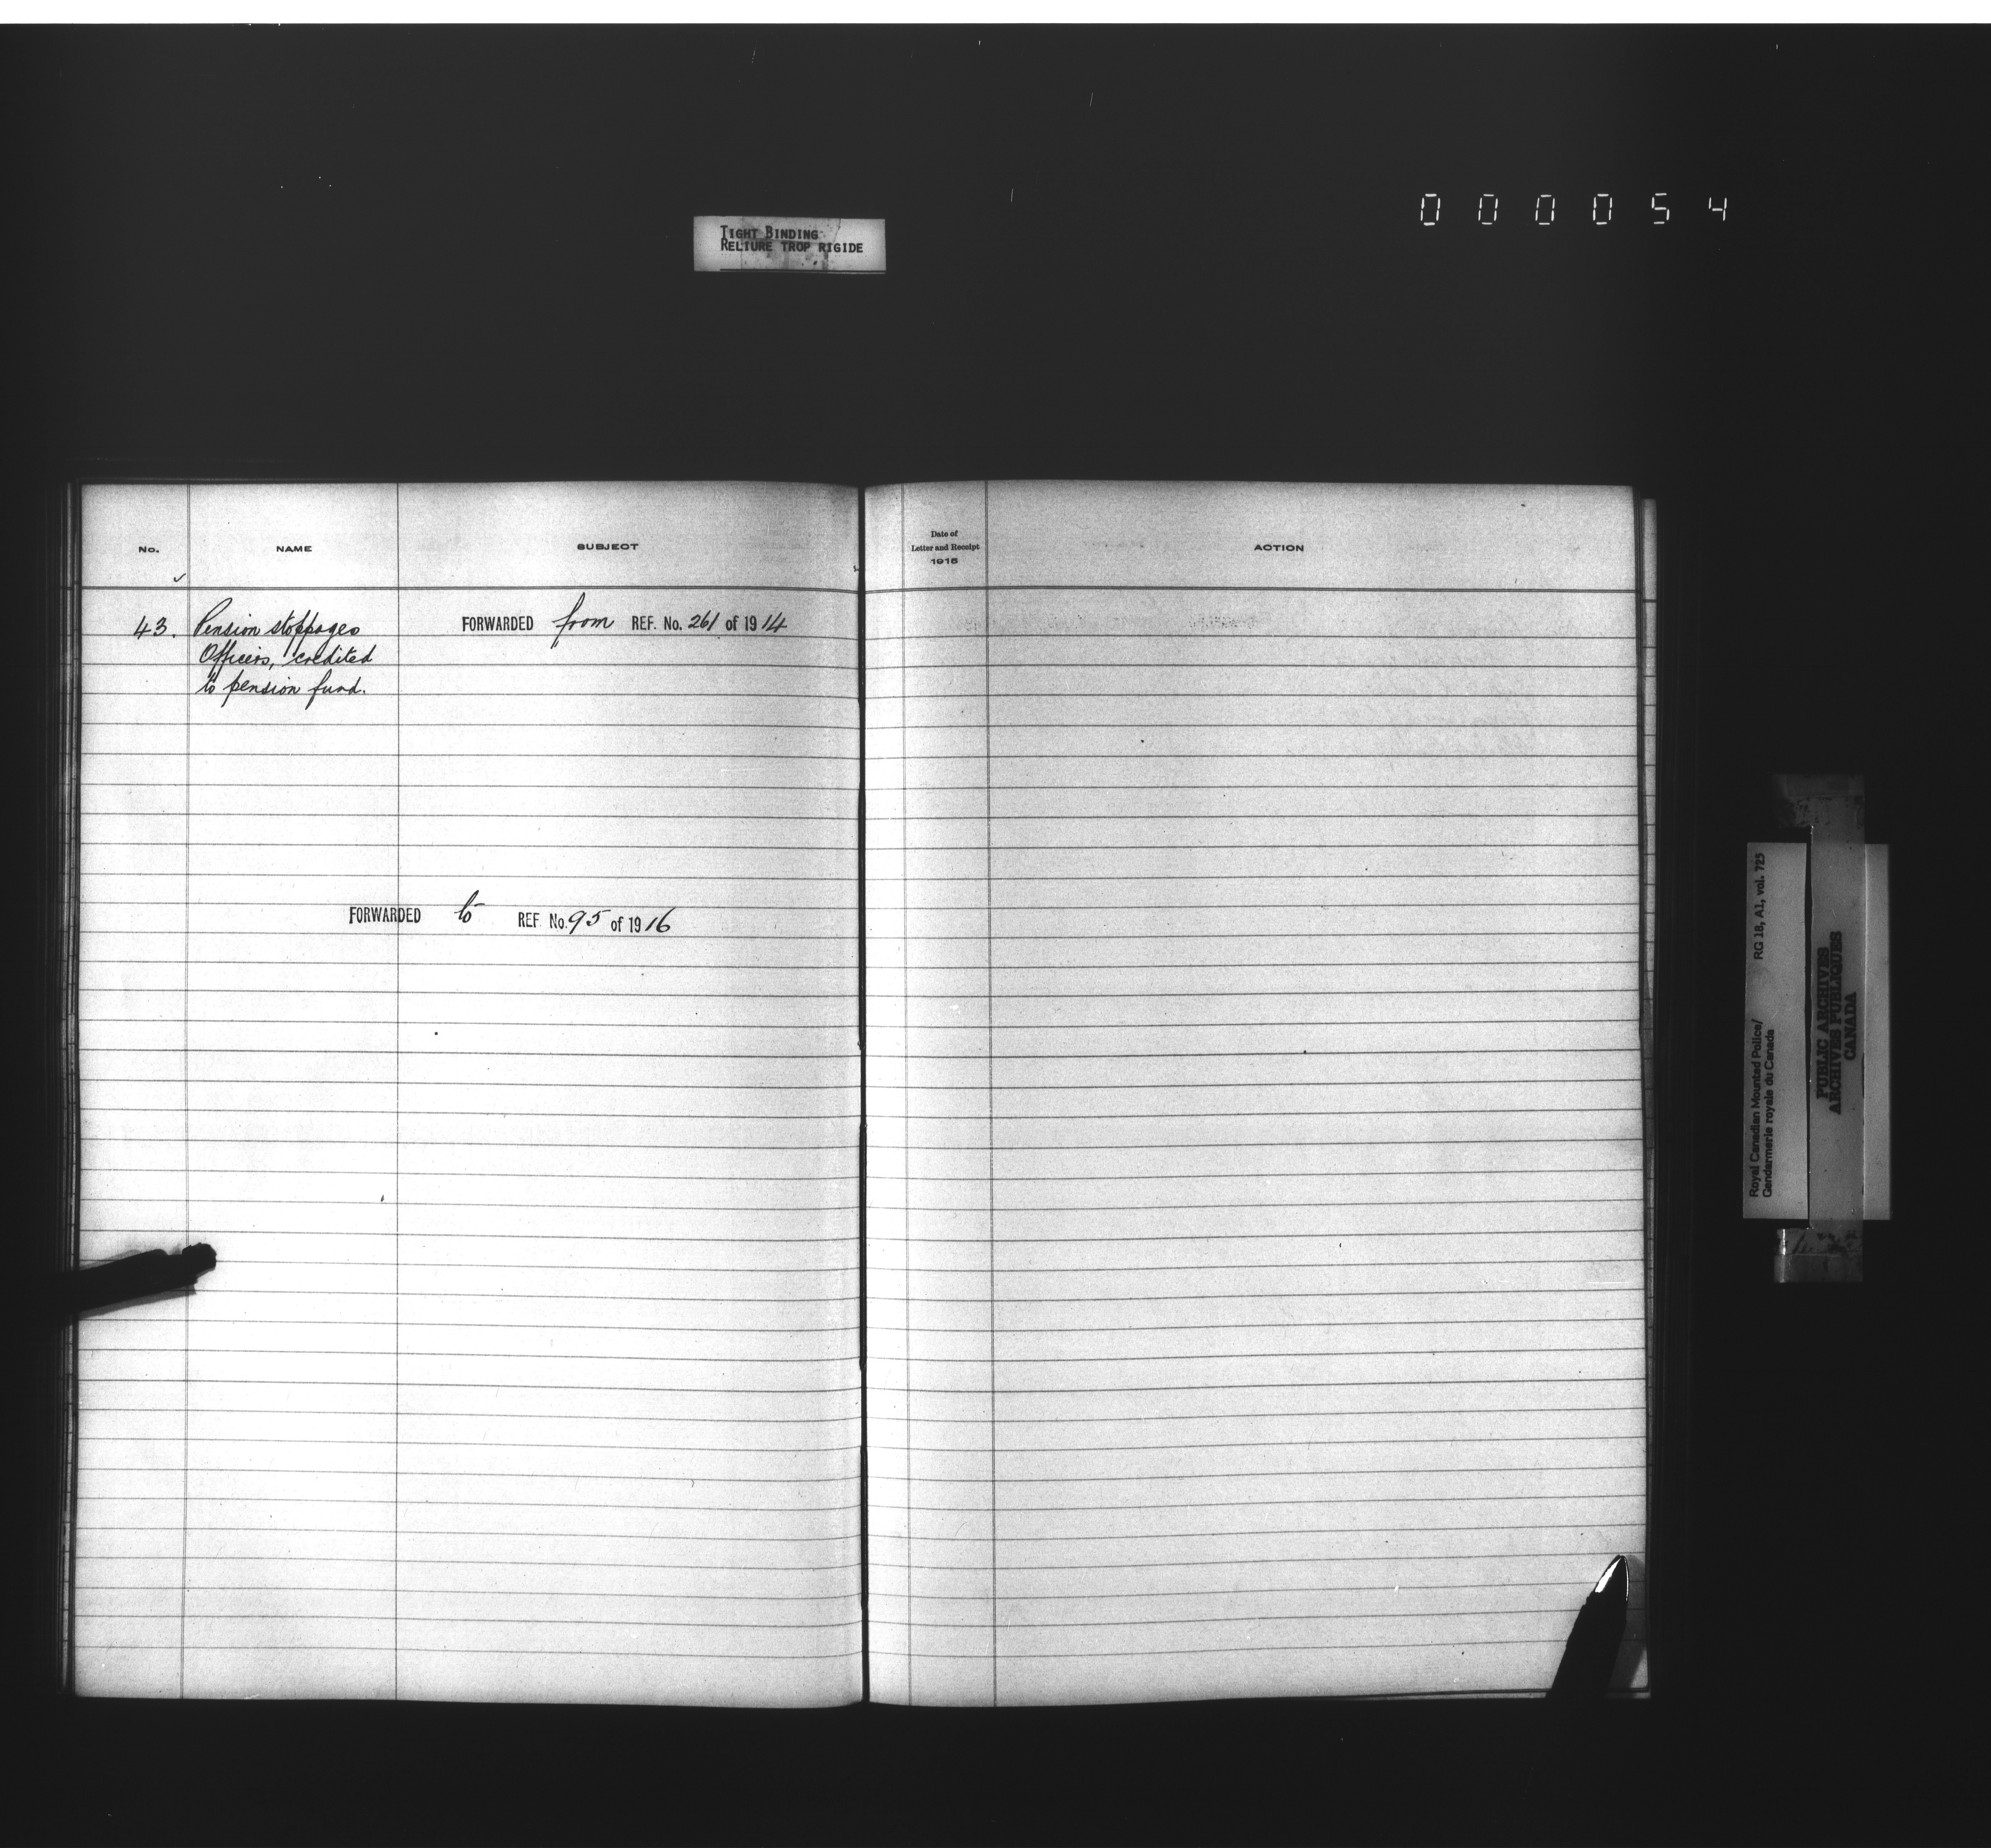 000054
TIGHT BINDING
RELIURE TROP RIGIDE
No.
NAME
SUBJECT
Date of
Letter and Receipt
1915
ACTION
43.
Pension stoppages
Officers, credited
to pension fund.
FORWARDED from REF. No. 261 of 1914
FORWARDED to REF. No. 95 of 1916
Royal Canadian Mounted Police/ RG 18, A1, vol. 725
Gendarmerie royale du Canada
PUBLIC ARCHIVES
ARCHIVES PUBLIQUES
CANADA